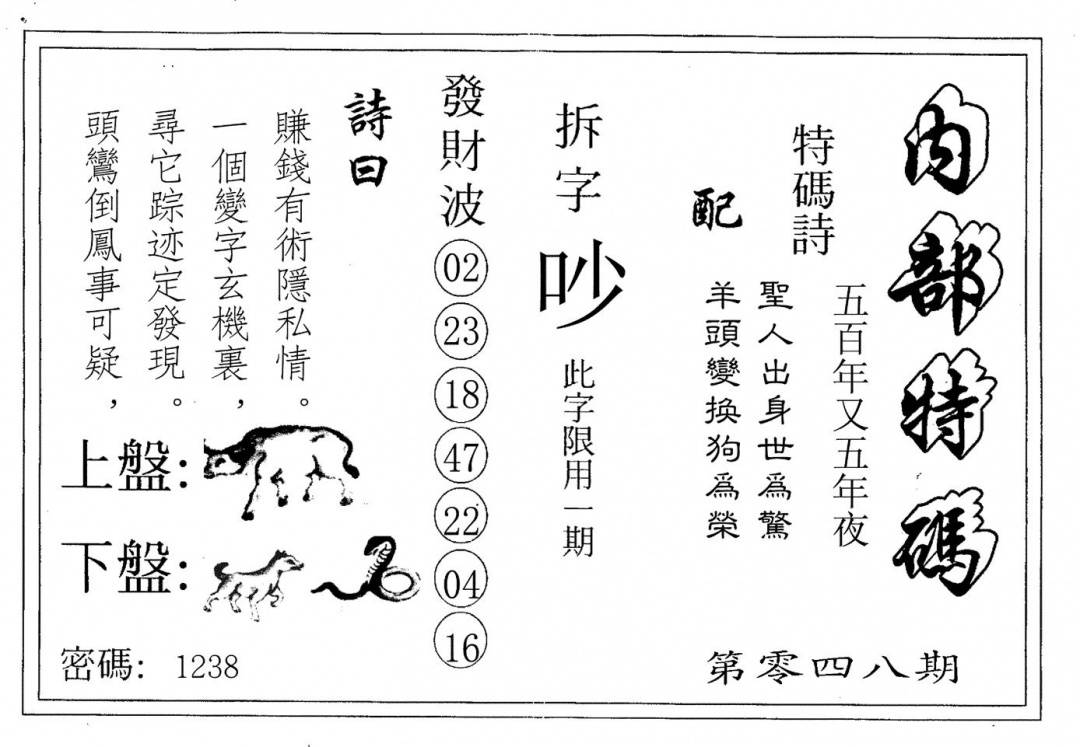 內部特碼
第零四八期
特碼詩
五百年又五年夜
配
聖人出身世為驚
羊頭變换狗為榮
拆字
吵
此字限用一期
發財波
02
23
18
47
22
04
16
詩曰
賺錢有術隱私情。
一個變字玄機裏，
尋它踪迹定發現。
頭鸞倒鳳事可疑，
上盤：
下盤：
密碼：1238